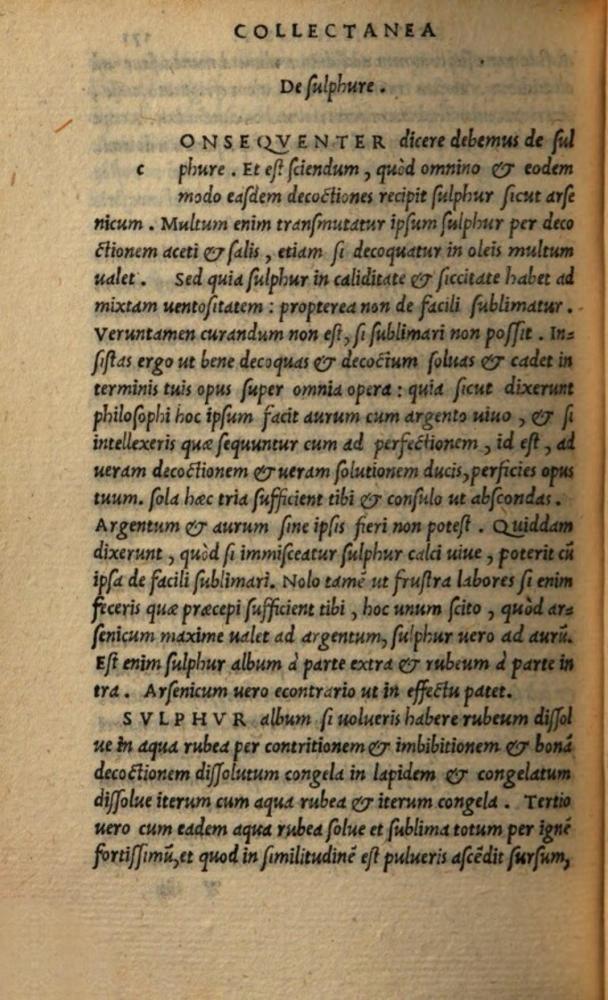 COLLECTANEA
De ſulphure .
ONSEQVENTER dicere debemus de ſul
c phure . Et eſt ſciendum , quòd omnino & eodem
modo eaſdem decoctiones recipit ſulphur ſicut arſe
nicum . Multum enim tranſmutatur ipſum ſulphur per deco
ctionem aceti & ſalis , etiam ſi decoquatur in oleis multum
ualet . Sed quia ſulphur in caliditate & ſiccitate habet ad
mixtam uentoſitatem : propterea non de facili ſublimatur .
Veruntamen curandum non eſt, ſi ſublimari non poſſit . In=
ſiſtas ergo ut bene decoquas & decoctum ſoluas & cadet in
terminis tuis opus ſuper omnia opera : quia ſicut dixerunt
philoſophi hoc ipſum facit aurum cum argento uiuo , & ſi
intellexeris quæ ſequuntur cum ad perfectionem , id eſt , ad
ueram decoctionem & ueram ſolutionem ducis, perficies opus
tuum. ſola hæc tria ſufficient tibi & conſulo ut abſcondas .
Argentum & aurum ſine ipſis fieri non poteſt . Quiddam
dixerunt , quòd ſi immiſceatur ſulphur calci uiue , poterit cū
ipſa de facili ſublimari. Nolo tamē ut fruſtra labores ſi enim
feceris quæ præcepi ſufficient tibi , hoc unum ſcito , quòd ar=
ſenicum maxime ualet ad argentum, ſulphur uero ad aurū.
Eſt enim ſulphur album à parte extra & rubeum à parte in
tra . Arſenicum uero econtrario ut in effectu patet.
SVLPHVR album ſi uolueris habere rubeum diſſol
ue in aqua rubea per contritionem & imbibitionem & bonā
decoctionem diſſolutum congela in lapidem & congelatum
diſſolue iterum cum aqua rubea & iterum congela . Tertio
uero cum eadem aqua rubea ſolue et ſublima totum per ignē
fortiſſimū, et quod in ſimilitudinē eſt pulueris aſcēdit ſurſum,